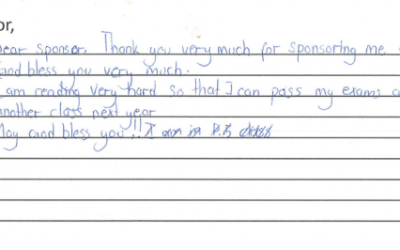 or,
Dear sponsor. Thank you very much for sponsoring me
and bless you very much.
I am reading very hard so that I can pass my exams
another class next year
May God bless you!! I am in P.5